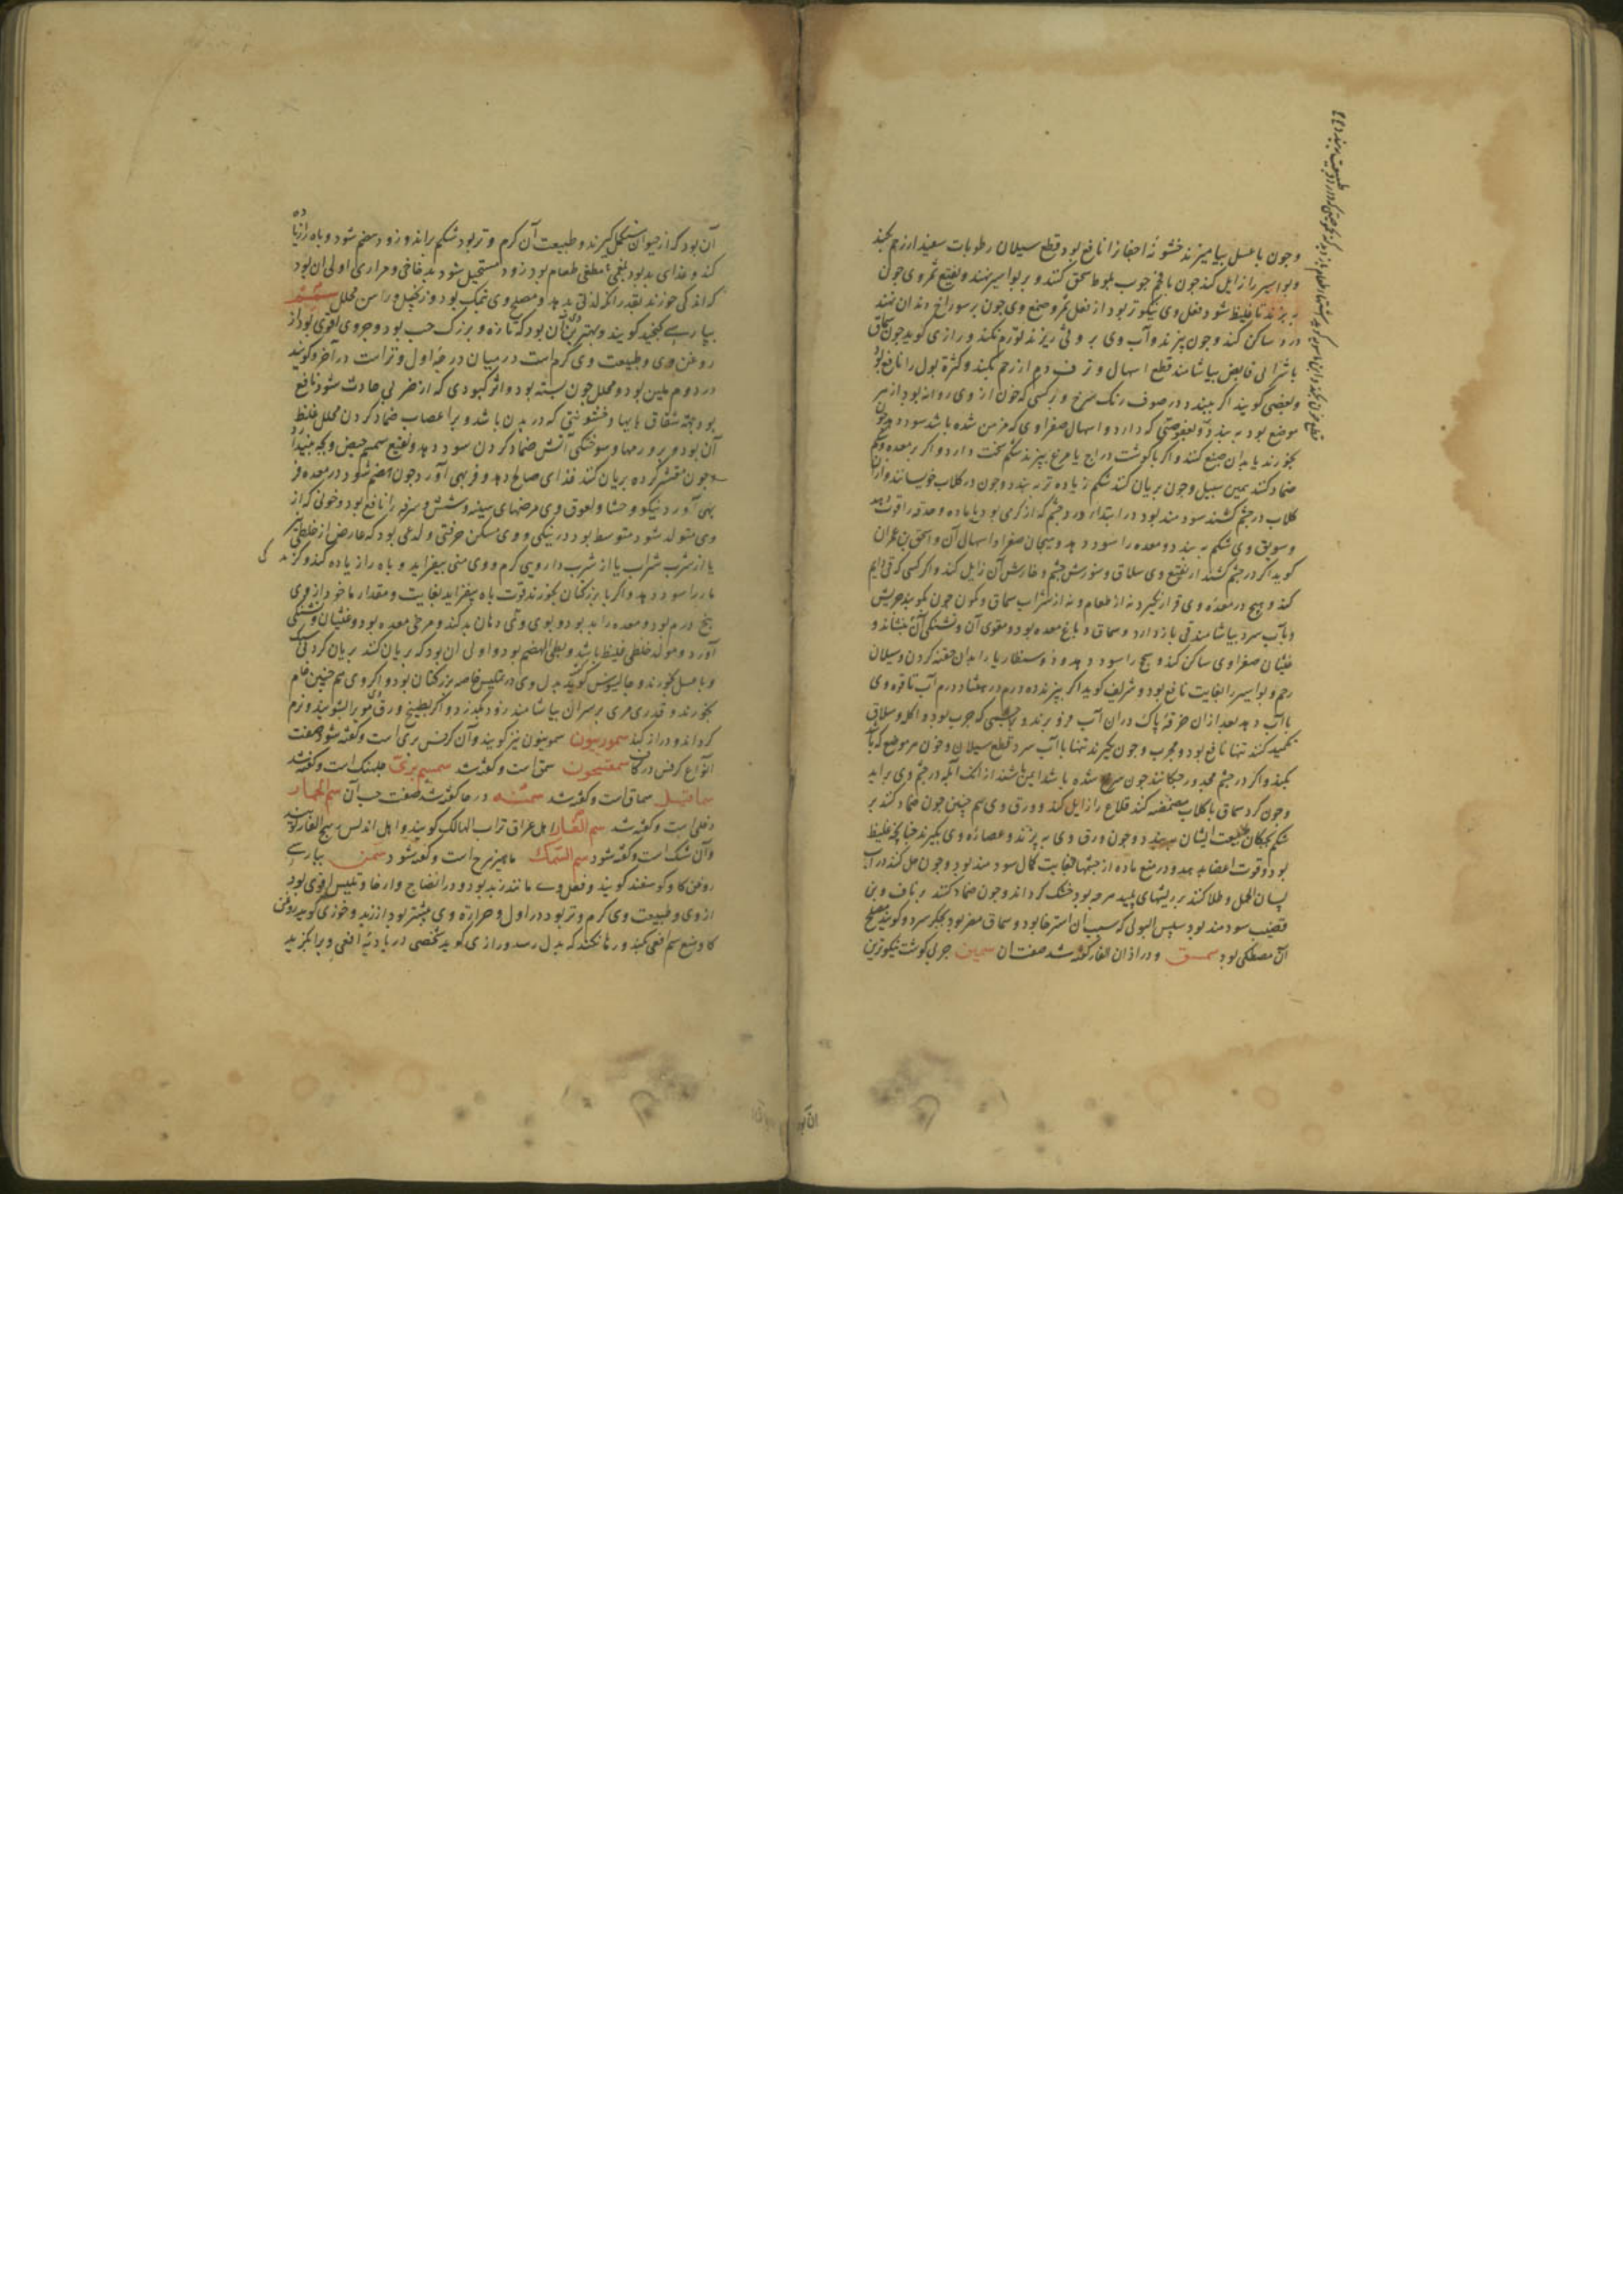 وجون باعسل بیامیزند خشونة اجفانرا نافع بود قطع سیلان رطوبات سفید از رحم بکند
وبواسیر را زایل کند جون با فحم جوب بلوط سحق کنند و بر بواسیر نهند ونقیع ثمر وی جون
بپزند تا غلیظ شود فعل وی نیکوتر بود از فعل ثمر و صمغ وی جون بر سوراخ دندان نهند
درد ساکن کند وجون بپزند وآب وی بر وثی ریزند تورم نکند ورازی کوید جون سماق
با شرابی قابض بیاشامند قطع اسهال و نزف دم از رحم بکند وکثرة بول را نافع بود
وبعضی کویند اکر ببندد در صوف رنک سرخ و بر کسی که خون از وی روانه بود از هر
موضع بود به بندد وبعفوصتی که دارد واسهال صفراوی که مزمن شده باشد سود دهد جون
بخورند یا بدان صبغ کنند واکر با کوشت دراج یا مرغ بپزند شکم سخت دارد واکر بر معده وشکم
ضماد کنند همین سبیل وجون بریان کنند شکم زیاده تر به بندد وجون در کلاب خویسانند وازان
کلاب در جشم کشند سودمند بود در ابتداء درد جشم که از کرمی بود با ماده وحدقه را قوت دهد
وسویق وی شکم به بندد ومعده را سود دهد وهیجان صفرا واسهال آن واسحق بن عمران
کوید اکر در جشم کشند از نقیع وی سلاق وسوزش جشم وخارش آن زایل کند واکر کسی که قی دایم
کند وهیج در معده وی قرار نکیرد نه از طعام ونه از شراب سماق وکمون جون بکوبند جریش
وبآب سرد بیاشامند قی باز دارد وسماق دباغ معده بود ومقوی آن وتشنکی آن بنشاند و
غثیان صفراوی ساکن کند وسحج را سود دهد ودوسنطاریا را بدان حقنه کردن وسیلان
رحم وبواسیر را بغایت نافع بود وشریف کوید اکر بپزند ده درم در هشتاد درم آب تا قوه وی
باآب دهد بعد ازان خرقهٔ پاک دران آب فرو برند وبر جشمی که جرب بود واکله وسلاق
تکمید کنند تنها نافع بود ومجرب وجون بکیرند تنها باآب سرد قطع سیلان وخون هر موضع که باشد
بکند واکر در جشم مجدور جکانند جون سرخ شده باشد ایمن باشند از انک آبله در جشم وی براید
وجون کرد سماق باکلاب مضمضه کنند قلاع را زایل کند وورق وی هم جنین جون ضماد کنند بر
شکم بجکان طبیعت ایشان ببندد وجون ورق وی بپزند وعصاره وی بکیرند جنانچه غلیظ
بود وقوت اعضا بدهد ودر منع ماده از جشمها بغایت کمال سودمند بود وجون حل کنند در آب
لسان الحمل وطلا کنند بر ریشهای پلید مرحه بود خشک کرداند وجون ضماد کنند بر ناف وبن
قضیب سودمند بود سلس البولی که سبب آن استرخا بود وسماق مضر بود بجکر سرد وکویند مصلح
آن مصطکی بود سمسق ودر اذان الفار کفته شد صفت ان سمین جربی کوشت نیکوترین
آن بود که از حیوان متکمل کیرند وطبیعت آن کرم وتر بود شکم براند وزود هضم شود وباه را زیاده
کند وغذای بد بود بلغمی مطفی طعام بود زود مستحیل شود به دخانی ومراری اولی ان بود
که اندکی خورند بقدر انک لذتی بدهد ومصلح وی نمک بود وزنجبیل وراسن مخلل سمسم
بپارسی کنجد کویند وبهترین آن بود که تازه وبزرک حب بود وجرم وی اقوی بود از
روغن وی وطبیعت وی کرم است در میان درجهٔ اول وتر است در آخر وکویند
در دوم ملین بود ومحلل خون بسته بود واثر کبودی که از ضربی حادث شود نافع
بود جهة شقاق پایها وخشونتی که در بدن باشد وبر اعصاب ضماد کردن محلل غلیظ
آن بود وبر ورمها وسوختکی آتش ضماد کردن سود دهد ونقیع سمسم حیض وبجه بیندازد
وجون مقشر کرده بریان کنند غذای صالح دهد وفربهی آورد جون هضم شود در معده فر
بهی آورد نیکو وحشا ولعوق وی مرضهای سینه وشش وسرفه را نافع بود وخونی که از
وی متولد شود متوسط بود در نیکی ووی مسکن حرقتی ولذعی بود که عارض از خلطی تیز
یا از شرب شراب یا از شرب دارویی کرم ووی منی بیفزاید وباه را زیاده کند وکزندکی
مار را سود دهد واکر با بزر کتان بخورند قوت باه بیفزاید بغایت ومقدار ماخوذ از وی
پنج درم بود ومعده را بد بود وبوی وقی دهان بد کند ومرخی معده بود وغثیان وتشنکی
آورد ومولد خلطی غلیظ باشد وبطی الهضم بود واولی ان بود که بریان کنند بریان کردنی سبک
وبا عسل بخورند وجالینوس کوید بدل وی در تلیین خاصه بزر کتان بود واکر وی هم جنین خام
بخورند وقدری مری بر سر آن بیاشامند زود بکذرد واکر بطبیخ ورق وی موی را بشویند نرم
کرداند ودراز کند سمورنیون سمونیون نیز کویند وآن کرفس بری است وکفته شود صفت
انواع کرفس در کاف سمقیحون سمق است وکفته شد سمسم بری جلبهنک است وکفته شد
سماقیل سماق است وکفته شد سمنه در حا کفته شد صفت حب آن سم الحمار
دفلی است وکفته شد سم الفار اهل عراق تراب الهالک کویند واهل اندلس رهج الفار کویند
وآن شک است وکفته شود سم السمک ماهیزهرج است وکفته شود سمن بپارسی
روغن کاو وکوسفند کویند وفعل وی مانند زبد بود ودر انضاج وارخا وتلیین اقوی بود
از وی وطبیعت وی کرم وتر بود در اول وحرارة وی بیشتر بود از زبد وخوزی کوید روغن
کاو منع سم افعی بکند ورها نکند که بدل رسد ورازی کوید شخصی در بادیه افعی ویرا بکزید